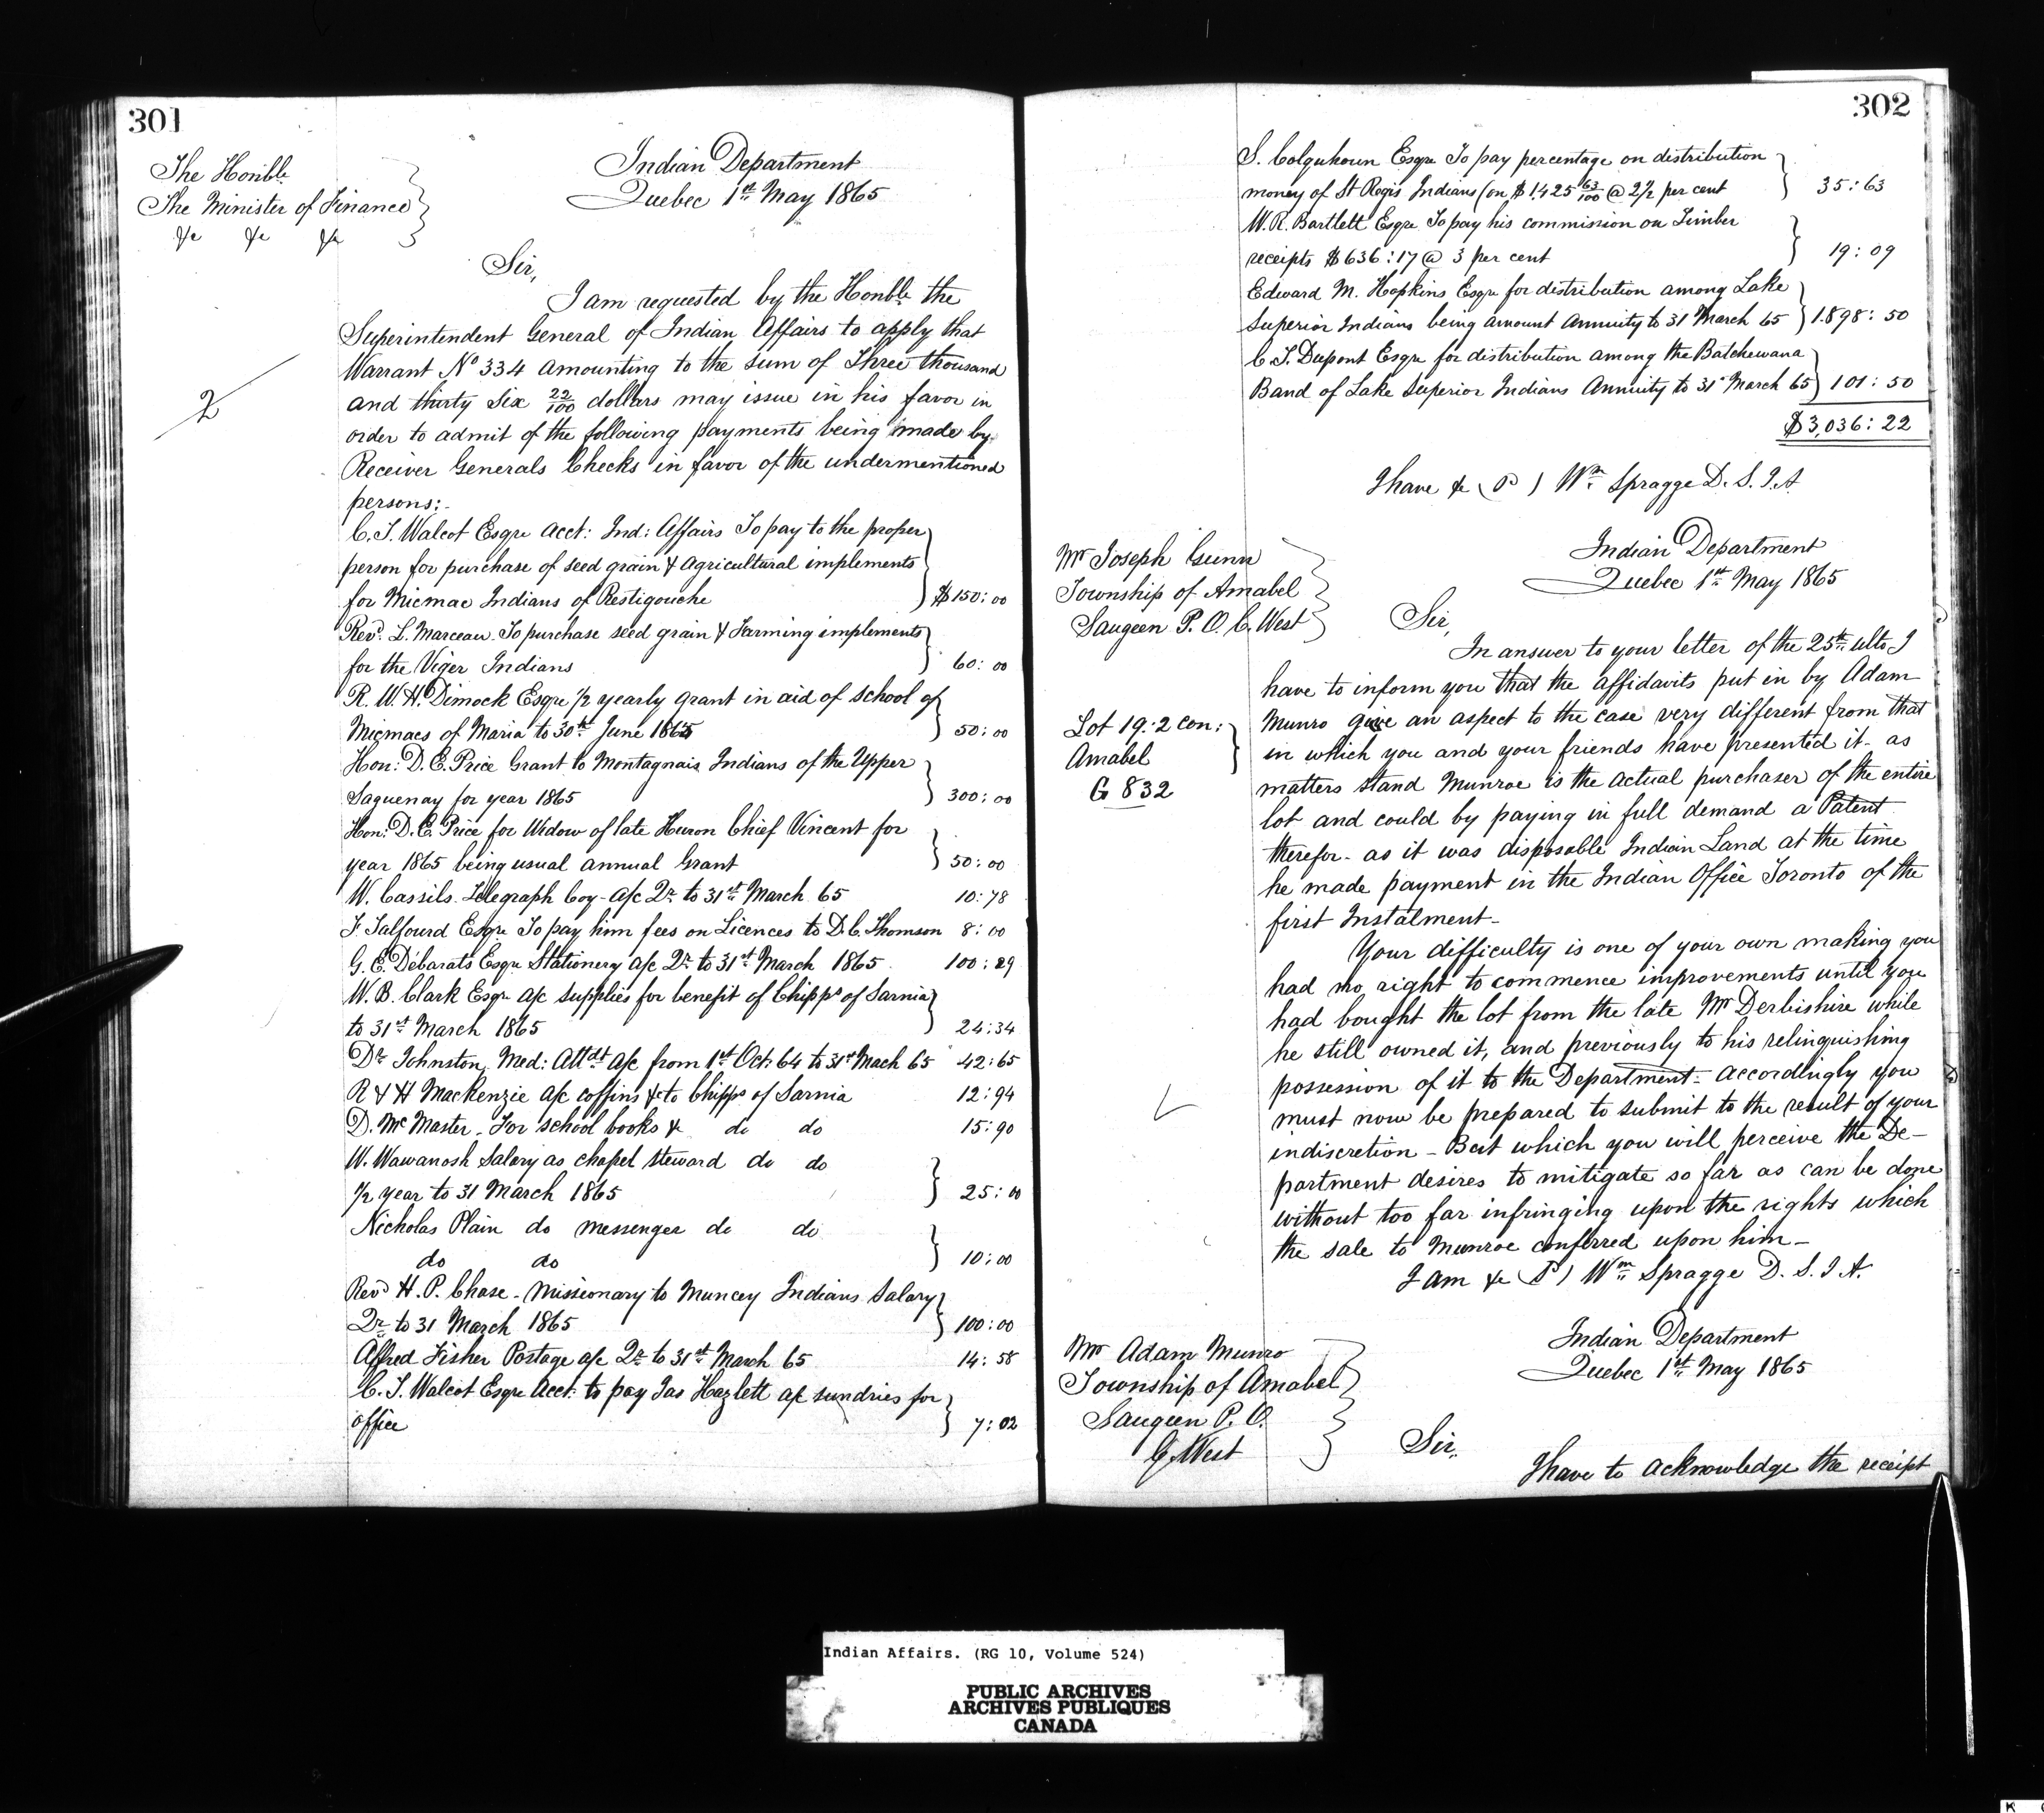 301
The Honble
The Minister of Finance
&c &c &c
Indian Department
Quebec 1st May 1865
Sir,
I am requested by the Honble the
Superintendent General of Indian Affairs to apply that
Warrant No 334 amounting to the sum of Three thousand
2
and thirty six 22/100 dollars may issue in his favor in
order to admit of the following payments being made by
Receiver Generals Checks in favor of the undermentioned
persons:-
C. T. Walcot Esqre Acct: Ind: Affairs To pay to the proper
person for purchase of seed grain & Agricultural implements
for Micmac Indians of Restigouche $150:00
Revd. L. Marceau. To purchase seed grain & Farming implements
for the Viger Indians 60:00
R. W. H. Dimock Esqre 1/2 yearly grant in aid of school of
Micmacs of Maria to 30th June 1865 50:00
Hon: D. E. Price Grant to Montagnais Indians of the Upper
Saguenay for year 1865 300:00
Hon: D. E. Price for Widow of late Huron Chief Vincent for
year 1865 being usual annual Grant 50:00
W. Cassils. Telegraph Coy. a/c Qr to 31st March 65 10:78
F. Talfourd Esqre To pay him fees on Licences to D. C. Thomson 8:00
G. E. Débarats Esqre Stationery a/c Qr to 31st March 1865 100:29
W. B. Clark Esqr a/c supplies for benefit of Chipps of Sarnia
to 31st March 1865 24:34
Dr Johnston, Med: Attdt a/c from 1st Oct: 64 to 31st Mach 65 42:65
R & H Mackenzie a/c coffins &c to Chipps of Sarnia 12:94
D. McMaster - For school books & do do 15:90
W. Wawanosh Salary as chapel steward do do
1/2 year to 31 March 1865 25:00
Nicholas Plain do messenger do do
do do 10:00
Revd H. P. Chase - Missionary to Muncey Indians Salary
Qr to 31 March 1865 100:00
Alfred Fisher Postage a/c Qr to 31st March 65 14:58
C. T. Walcot Esqre Acct: to pay Jas Hazlett a/c sundries for
office 7:02
302
S. Colquhoun Esqre To pay percentage on distribution
money of St Regis Indians (on $1,425 63/100 @ 2 1/2 per cent 35:63
W. R. Bartlett Esqre To pay his commission on Timber
receipts $636:17 @ 3 per cent 19:09
Edward M. Hopkins Esqre for distribution among Lake
Superior Indians being amount Annuity to 31 March 65 1.898:50
C. T. Dupont Esqre for distribution among the Batchewana
Band of Lake Superior Indians Annuity to 31st March 65 101:50
$3,036:22
I have &c (Sd) Wm Spragge D. S. I. A.
Mr Joseph Gunn
Township of Amabel
Saugeen P. O. C. West
Indian Department
Quebec 1st May 1865
Sir,
In answer to your letter of the 25th ulto I
have to inform you that the affidavits put in by Adam
Lot 19. 2 con:
Amabel
G 832
Munro give an aspect to the case very different from that
in which you and your friends have presented it - as
matters stand Munroe is the actual purchaser of the entire
lot and could by paying in full demand a Patent
therefor - as it was disposable Indian Land at the time
he made payment in the Indian Office Toronto of the
first Instalment -
Your difficulty is one of your own making you
had no right to commence improvements until you
had bought the lot from the late Mr Derbishire while
he still owned it, and previously to his relinquishing
possession of it to the Department - accordingly you
must now be prepared to submit to the result of your
indiscretion - But which you will perceive the De-
partment desires to mitigate so far as can be done
without too far infringing upon the rights which
the sale to Munroe conferred upon him -
I am &c (Sd) Wm Spragge D. S. I A.
Mr Adam Munro
Township of Amabel
Saugeen P. O.
C. West
Indian Department
Quebec 1st May 1865
Sir,
I have to acknowledge the receipt
Indian Affairs. (RG 10, Volume 524)
PUBLIC ARCHIVES
ARCHIVES PUBLIQUES
CANADA